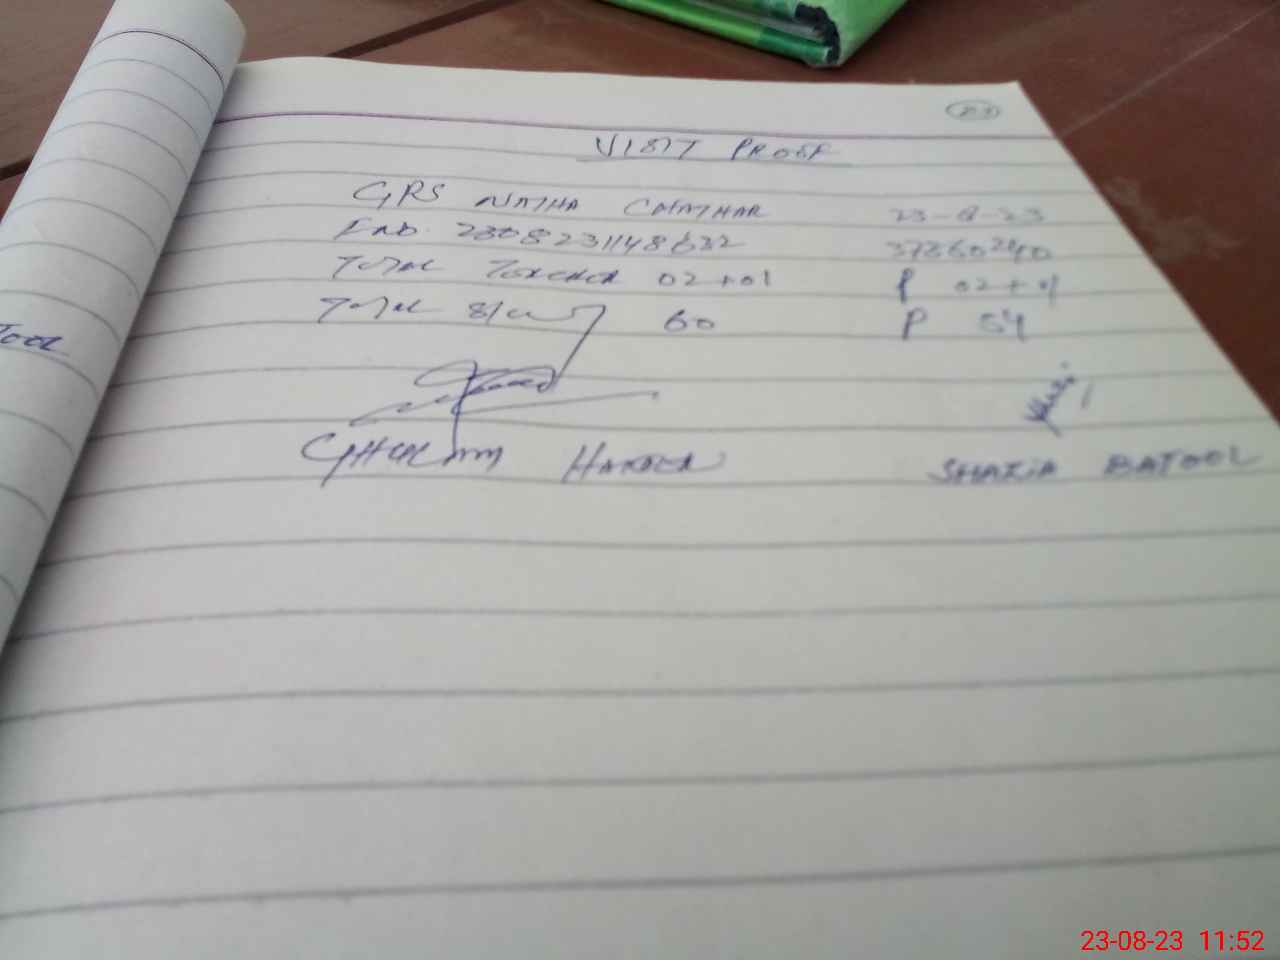 VISIT PROOF
GPS NATHA CHATHAR 23-8-23
2308231148632 37360240
TOTAL TEACHER 02+01 P 02+01
TOTAL 60 P 54
GHULAM SHAZIA BATOOL
23-08-23 11:52